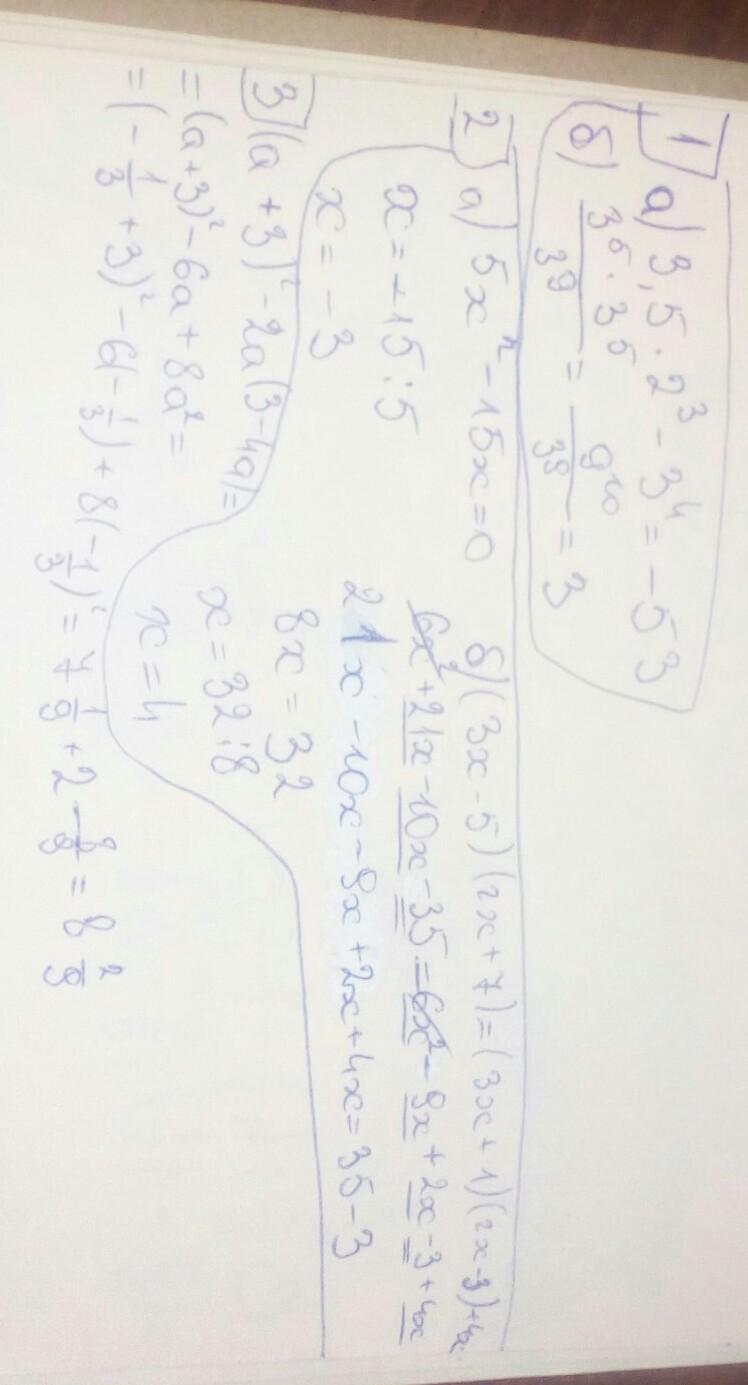 1 а) 3,5 · 2³ - 3⁴ = -53
б) 3⁵ · 3⁵ / 3⁹ = 9¹⁰ / 3⁹ = 3
2 а) 5x² - 15x = 0
x = -15 : 5
x = -3
б) (3x - 5)(2x + 7) = (3x + 1)(2x - 3) + 4x
6x² + 21x - 10x - 35 = 6x² - 9x + 2x - 3 + 4x
21x - 10x - 9x + 2x + 4x = 35 - 3
8x = 32
x = 32 : 8
x = 4
3 (a + 3)² - 2a(3 - 4a) =
= (a + 3)² - 6a + 8a² =
= (-1/3 + 3)² - 6(-1/3) + 8(-1/3)² = 7 1/9 + 2 - 8/9 = 8 2/9